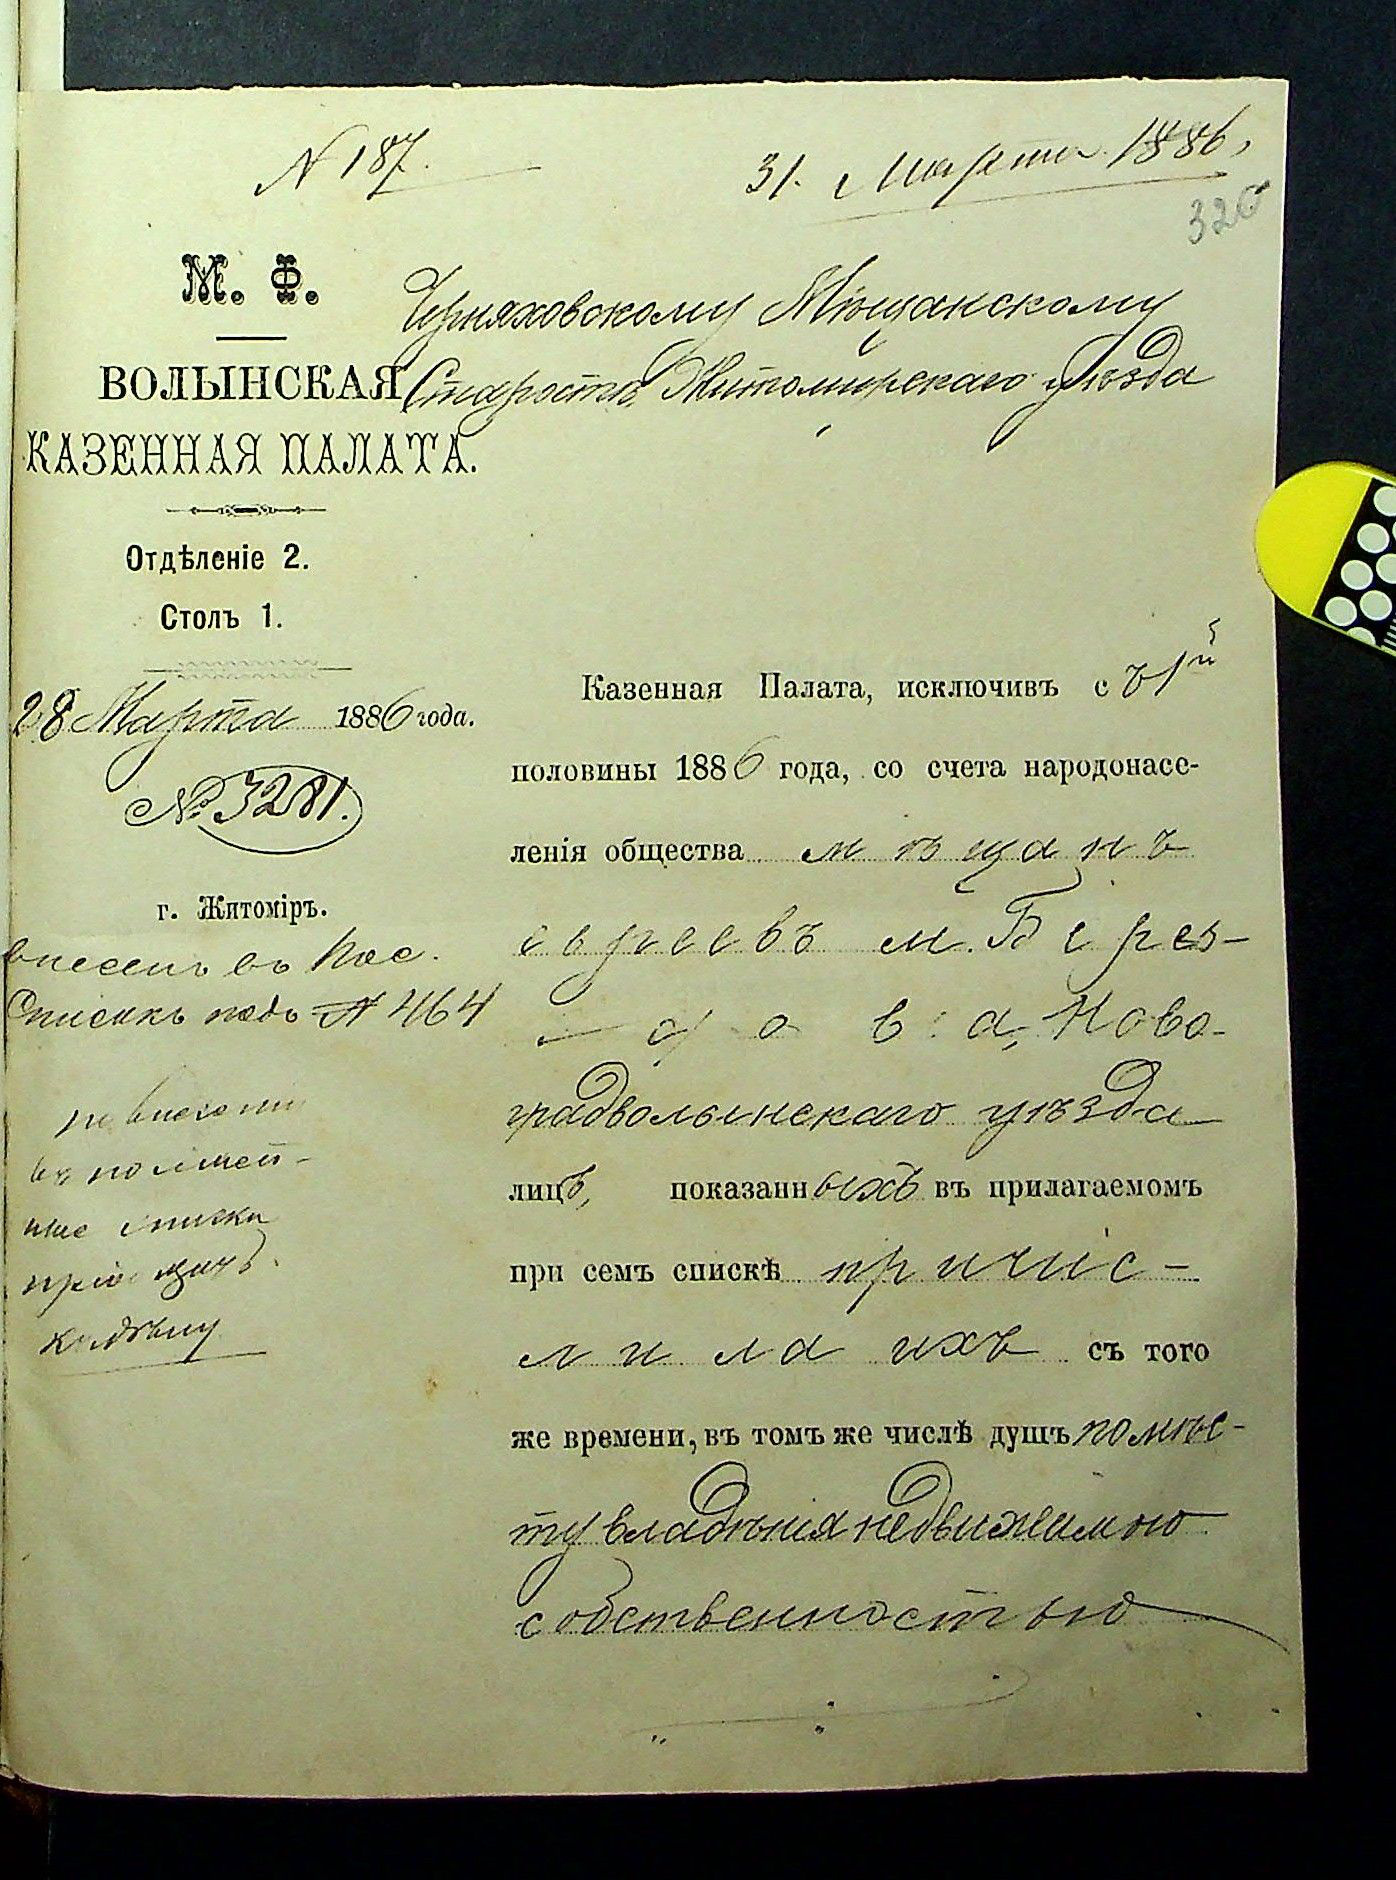 N 187.
31. Марта 1886,
320
М. Ф.
ВОЛЫНСКАЯ
КАЗЕННАЯ ПАЛАТА.
Отдѣленіе 2.
Столъ 1.
28 Марта 1886 года.
№ 3281.
г. Житоміръ.
внесенъ въ Пос.
Списикъ подъ N 464
Черняховскому Мѣщанскому
Старостѣ, Житомирскаго уѣзда
Казенная Палата, исключивъ съ 1й
половины 1886 года, со счета народонасе-
ленія общества мѣщанъ
евреевъ м. Берез-
дова, Ново-
градволынскаго уѣзда
лицъ, показанныхъ въ прилагаемомъ
при семъ спискѣ причис-
лила ихъ съ того
же времени, въ томъ же числѣ душъ по мѣс-
ту владѣнія недвижимою
собственностью